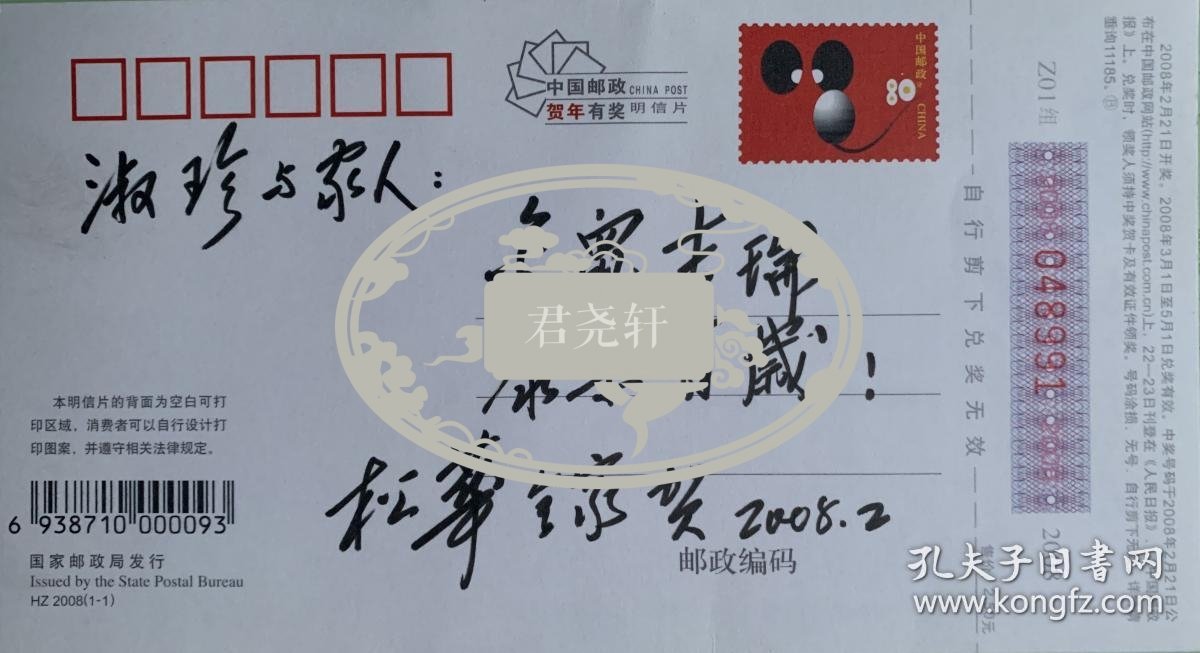 中国邮政 CHINA POST
贺年有奖 明信片
中国邮政 CHINA
淑珍与家人：
瑞
歲！
松華全家贺 2008.2
君尧轩
本明信片的背面为空白可打
印区域，消费者可以自行设计打
印图案，并遵守相关法律规定。
6 938710 000093
国家邮政局发行
Issued by the State Postal Bureau
HZ 2008(1-1)
邮政编码
自行剪下兑奖无效
Z01组
048991
2008年2月21日开奖。2008年3月1日至5月1日兑奖有效。中奖号码于2008年2月21日公
布在中国邮政网站(http://www.chinapost.com.cn)上，22—23日刊登在《人民日报》、
报》上。兑奖时，领奖人须持中奖贺卡及有效证件领奖，号码涂损、无号、自行剪下无
垂询11185。
孔夫子旧书网
www.kongfz.com